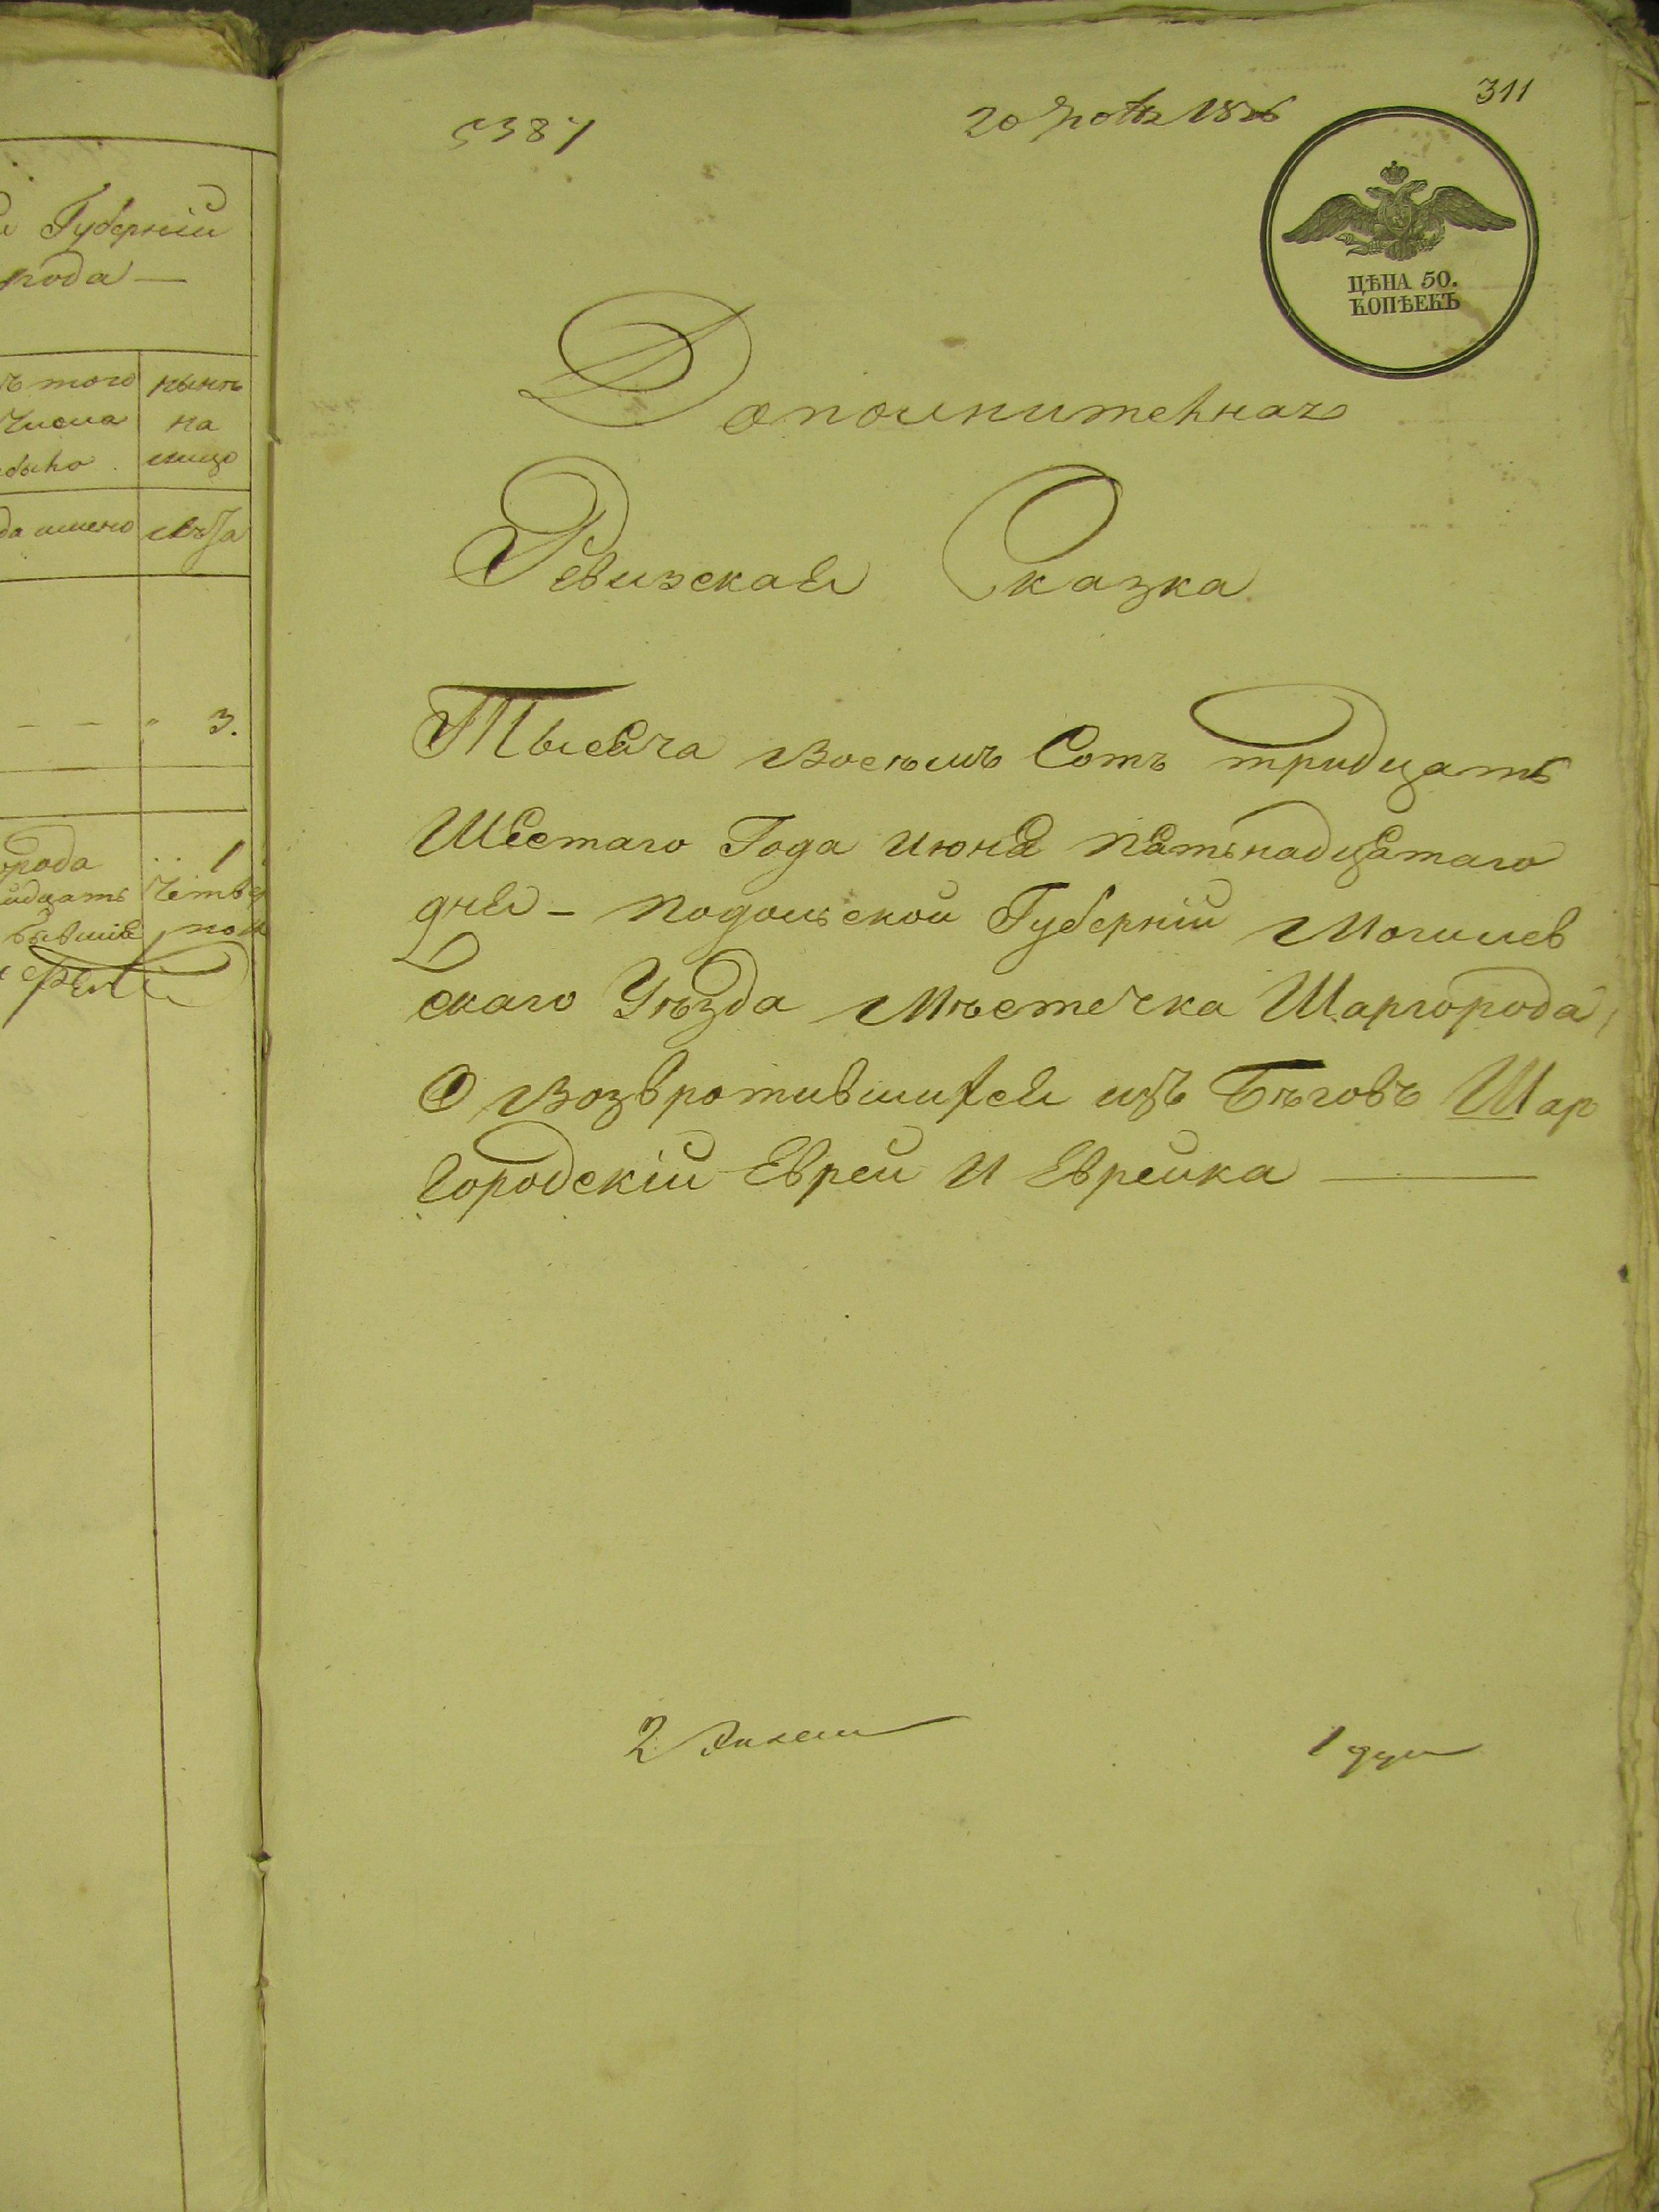 и Губерніи
рода —
ъ того нынѣ
числа на
было лицо
лѣта
3.
рода 1
идцать четвер
бывшіе
311
5387
20
ЦѢНА 50.
КОПѢЕКЪ
Дополнительная
Ревизская Сказка
Тысяча Восемь Сотъ тридцать
Шестаго Года июня пятьнадцятаго
дня – подольской Губерніи Могилев
скаго Уѣзда Мѣстечка Шаргорода,
О Возвротившихся изъ Бѣговъ Шар
городскій Еврей и Еврейка —
2
1 душ